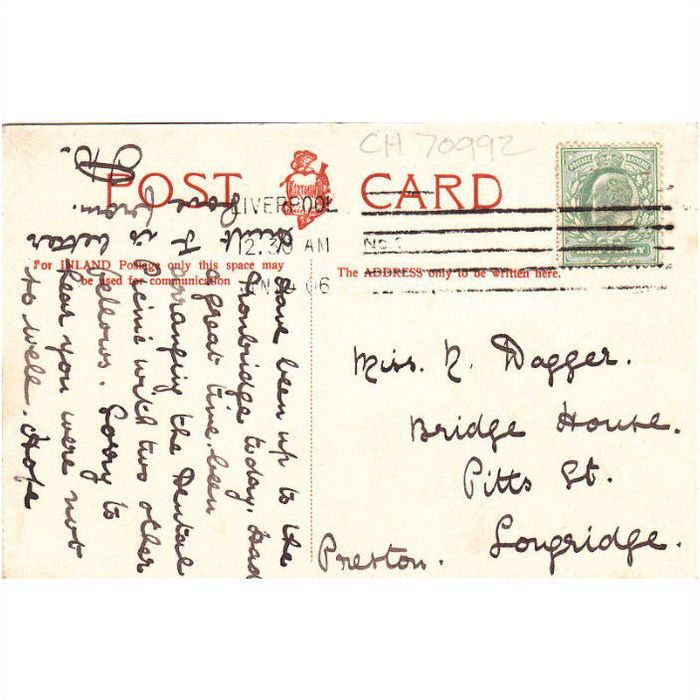 CH 70992
POST CARD
LIVERPOOL
12.30 AM
No. 1
06
POSTAGE
For INLAND Postage only this space may
be used for communication
The ADDRESS only to be written here.
Have been up to the
Ironbridge today. Had
a great time been
arranging the Dental
Scheme with two other
fellows. Sorry to
hear you were not
so well. Hope
Aunt F is better
Love from
Miss. N. Dagger.
Bridge House.
Pitts St.
Longridge.
Preston.